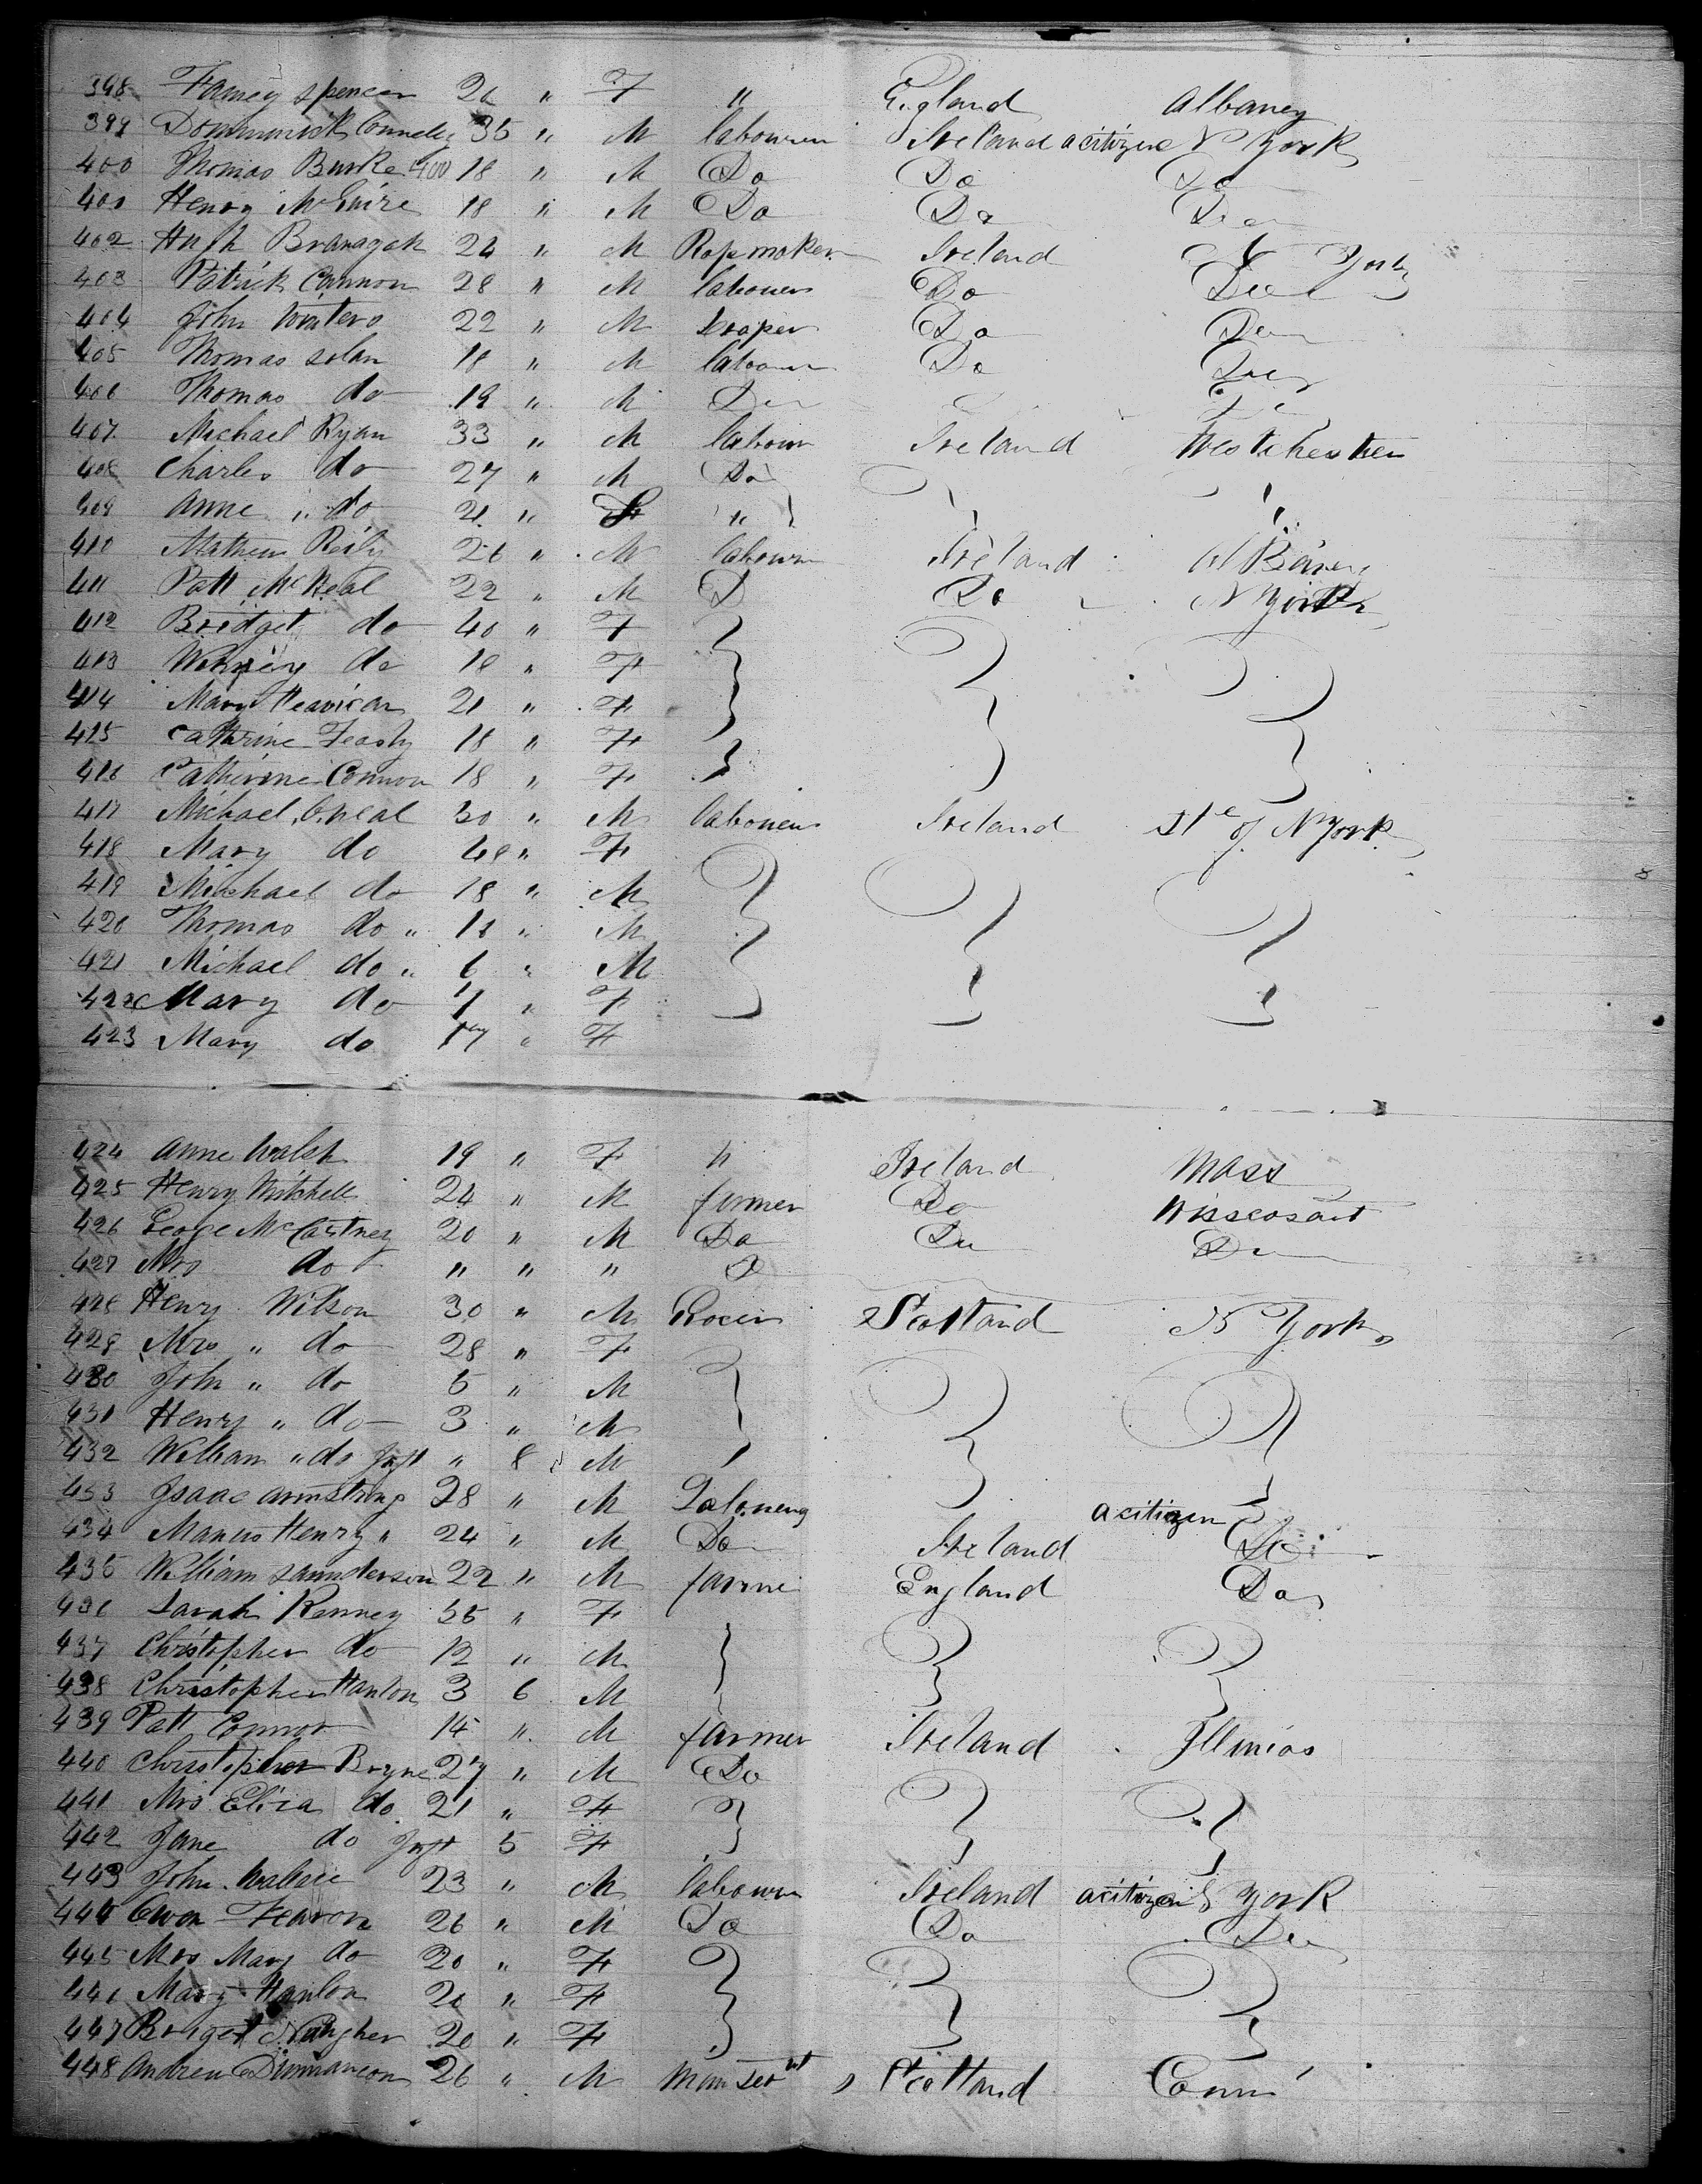 398 Fanney Spencer 26 " F " England Albaney
399 Domminick Conneley 35 " M labourer Ireland a citizen N York
400 Thomas Burke 400 18 " M Do Do Do
401 Henry McGuire 18 " M Do Do Do
402 Hugh Branagah 24 " M Ropmaker Ireland N York
403 Patrick Cannon 28 " M labourer Do Do
404 John Winters 22 " M Draper Do Do
405 Thomas Solan 18 " M labourer Do Do
406 Thomas do 19 " M Do
407 Michael Ryan 33 " M labour Ireland Westchester
408 Charles do 27 " M Do
409 Anne " do 21 " F "
410 Mathew Reily 26 " M labour Ireland
411 Patt McNeal 22 " M D Do N York
412 Bridget do 40 " F
413 do 18 " F
414 Mary 21 " F
415 Cathrine 18 " F
416 Catherine Connor 18 " F
417 Michael O.neal 30 " M labourer Ireland Ste of N York
418 Mary do 48 " F
419 Michael do 18 " M
420 Thomas do " 18 " M
421 Michael do " 6 " M
422 Mary do 7 " F
423 Mary do 17 " F
424 Anne Walsh 19 " F " Ireland Mass
425 Henry Mitchell 24 " M farmer Do
426 George McCartney 20 " M Do Do Do
427 Mrs do " " " D
428 Henry Wilson 30 " M Grocer Scotland N York
429 Mrs " do 28 " F
430 John " do 5 " M
431 Henry " do 3 " M
432 William " do Inft " 8 M
433 Isaac Armstrong 28 " M a citizen
434 Manus Henry " 24 " M Do Ireland Do
435 William Saunderson 22 " M farme England Do
436 Sarah Kenney 35 " F
437 Christopher do 12 " M
438 Christopher Hanlon 3 6 M
439 Patt Connor 14 " M farmer Ireland Illinios
440 Christopher Bryne 27 " M Do
441 Mrs Eliza do 21 " F
442 Jane do Inft 5 F
443 John Wallace 23 " M labourer Ireland a citizen N York
444 Owen Fearon 26 " M Do Do Do
445 Mrs Mary do 20 " F
446 Mary Hanlon 20 " F
447 20 " F
448 Andrew 26 " M Man Servt Scotland Conn